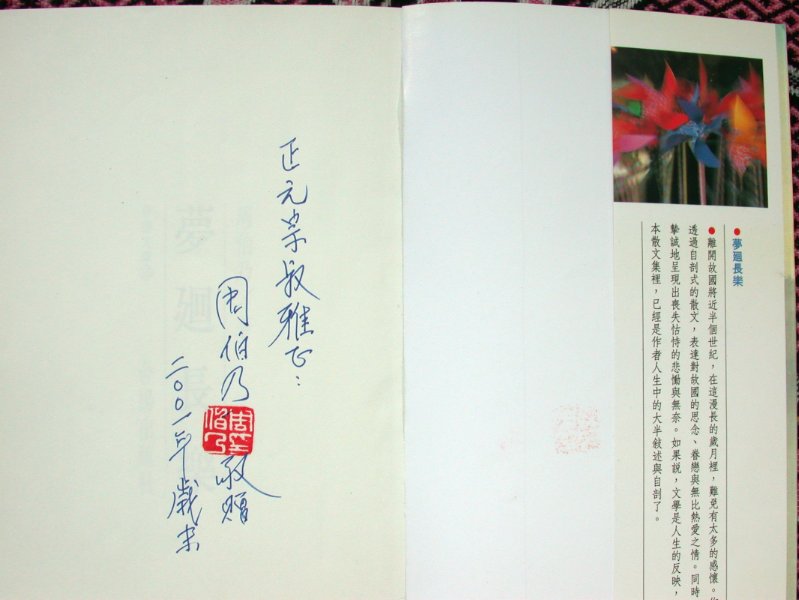 ●夢廻長樂
●離開故國將近半個世紀，在這漫長的歲月裡，難免有太多的感懷。
透過自剖式的散文，表達對故國的思念、眷戀與無比熱愛之情。同時
摯誠地呈現出喪失怙恃的悲慟與無奈。如果說，文學是人生的反映，
本散文集裡，已經是作者人生中的大半敘述與自剖了。
正元榮叔雅正：
周伯乃敬贈
二〇〇一年歲末